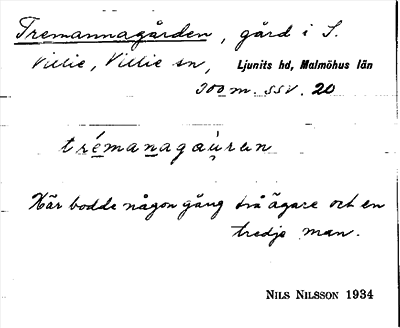 Tremannagården, gård i S.
Villie, Villie sn, Ljunits hd, Malmöhus län
300 m. SSV. 20
trémanagáuran
Här bodde någon gång två ägare och en
tredje man.
NILS NILSSON 1934